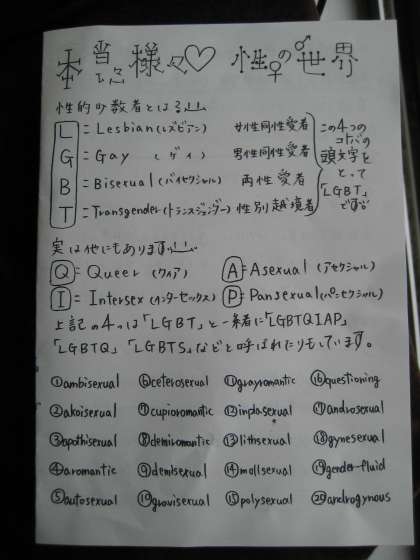 本当に様々♡ 性の世界
性的少数者とは?!!
L = Lesbian(レズビアン) 女性同性愛者
G = Gay (ゲイ) 男性同性愛者
B = Bisexual(バイセクシャル) 両性愛者
T = Transgender(トランスジェンダー) 性別越境者
この4つの
コトバの
頭文字を
とって
「LGBT」
です。
実は他にもあります!!
Q = Queer (クィア) A = Asexual (アセクシャル)
I = Intersex(インターセックス) P = Pansexual(パンセクシャル)
上記の4つは「LGBT」と一緒に「LGBTQIAP」
「LGBTQ」「LGBTs」などと呼ばれたりもしています。
①ambisexual ⑥ceterosexual ⑪grayromantic ⑯questioning
②akoisexual ⑦cupioromantic ⑫ sexual ⑰androsexual
③apothisexual ⑧demiromantic ⑬lithsexual ⑱gynesexual
④aromantic ⑨demisexual ⑭ sexual ⑲gender-fluid
⑤autosexual ⑩graysexual ⑮polysexual ⑳androgynous